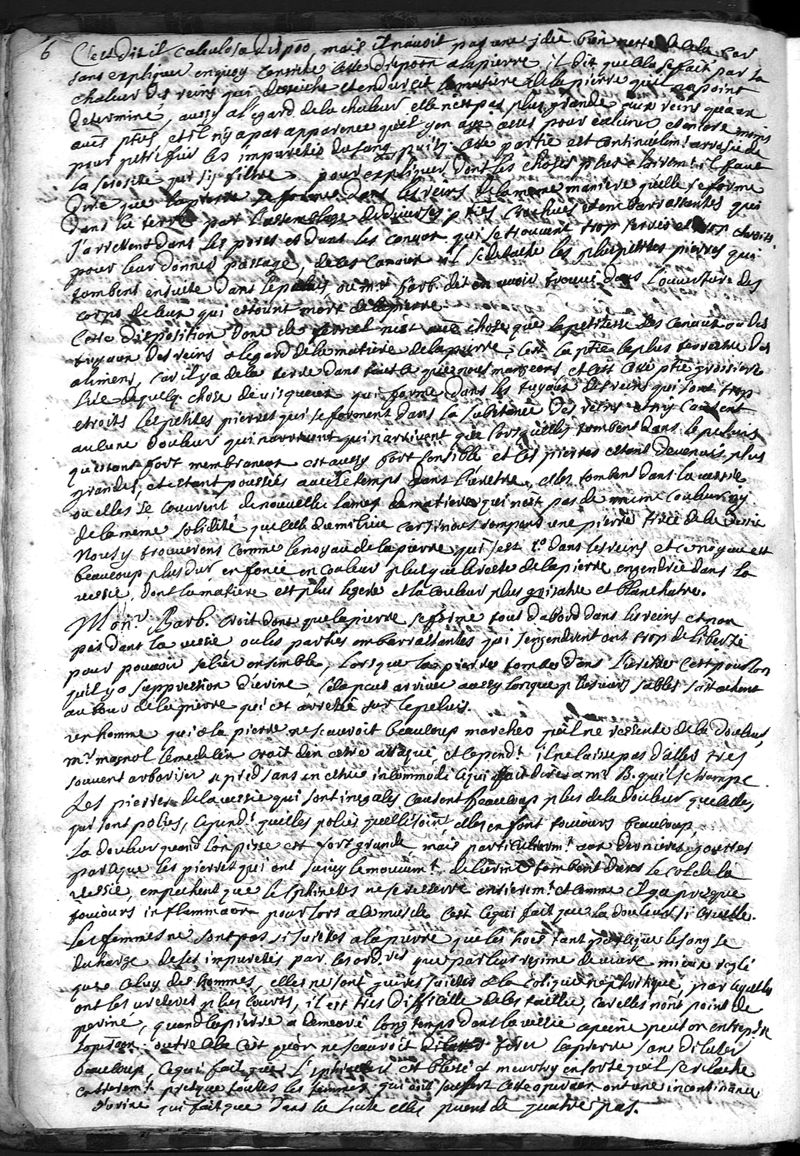 6 C'est dit il calculosa dispõo, mais il n'avoit pas une idée bien nette de cela car
sans expliquer en quoy consiste cette dispõon a la pierre, il dit que cela se fait par la
chaleur des reins qui desseiche et endurcit la matiere de la pierre qu'il a point
determiné, aussy a l'egard de la chaleur elle n'est pas plus grande aux reins qu'aux
autres pties et il n'y a pas apparence qu'il y en aye assés pour calciner et encore moins
pour petrifier les impuretés du sang puisq. cette partie est continuellem.t arrosée de
la serosité qui s'y filtre pour expliquer dont les choses plus clairem.t il faut
dire que la pierre se forme dans les reins de la meme maniere qu'elle se forme
dans la terre par l'assemblage de diverses pties crochues et embarrassantes qui
s'arrestent dans les pores et dans les conduits qui se trouvent trop serrés et trop etroits
pour leur donner passage, de ces canaux il se detache les plus petites pierres qui
tombent ensuite dans le pelvis ou mr Barb. dit en avoir trouvé dans l'ouverture des
corps de ceux qui estoient mort de la pierre.
Cette disposition donc de n'est autre chose que la petitesse des canaux ou des
tuyaux des reins a l'egard de la matiere de la pierre, c'est la ptie la plus terrestre des
alimens, car il y a de la terre dans tout ce que nous mangeons et c'est cette ptie grossiere
liée a quelque chose de visqueux qui forme dans les tuyaux des reins qui sont trop
etroits les petites pierres qui se forment dans la substance des reins et n'y causent
aucune douleur qui n'arrivent que lorsqu'elles tombent dans le pelvis
qui estant fort membraneux est aussy fort sensible et ces pierres estant devenues plus
grandes, et estant poussées avec le temps dans l'uretre, elles tombent dans la vessie
ou elles se couvrent de nouvelles lames de matiere qui n'est pas de meme couleur ny
de la meme solidité que celle du milieu car si nous rompons une pierre tirée de la vessie
Nous y trouverons comme le noyau de la pierre qui s'est 1.o dans les reins et ce noyau est
beaucoup plus dur, en foncé en couleur plus que le reste de la pierre engendrée dans la
vessie, dont la matiere est plus legere et la couleur plus grisatre et blanchatre.
Mon.r Barb. croit dont que la pierre se forme tous d'abord dans les reins et non
pas dans la vessie ou les parties embarrassantes qui s'engendrent ont trop de liberté
pour pouvoir se lier ensemble, lorsque les pierres tombe dans l'uretre c'est pour lors
qu'il y a suppression d'urine, cela peut arriver aussy lorsque plusieurs sables s'attachent
au bout de la pierre qui est arresté sur le pelvis.
un homme qui a la pierre ne scauroit beaucoup marcher qu'il ne ressente de la douleur,
mr. magnol le medecin croit d'en estre attaqué, et cepend.t il ne laisse pas d'aller tres
souvent arboriser a pied sans en estre incommodé ce qui fait dire a mr B. qu'il se trompe.
Les pierres de la vessie qui sont inegales causent beaucoup plus de la douleur que celles
qui sont polies, cepend.t quelles polies quelles soint elles en font toujours beaucoup,
la douleur quand l'on pisse est fort grande mais particulierem.t aux dernieres gouttes
parceque les pierres qui ont suivy le mouvem.t de l'urine tombent dans le col de la
vessie, empechent que le sphincter ne se resserre entierem.t et comme il y a presque
toujours inflammãon pour lors a ce muscle c'est ce qui fait que la douleur si cruelle.
Les femmes ne sont pas si sujetes a la pierre que les hões tant parceque le sang se
decharge de ses impuretés par les ordres que par leur regime de vivre mieux reglé
que celuy des hommes, elles ne sont gueres sujetes a la colique nephretique, parcequelles
ont les ureteres plus courts, il est tres difficille de les tailler, car elles n'ont point de
periné, quand la pierre a demeuré long temps dans la vessie a peine peut on entreprẽ
l'opãon, outre cela c'est qu'on ne scauroit tirer la pierre sans dilater
beaucoup, ce qui fait que l'sphincter est blessé et meurtry en sorte qu'il se relache
entierem.t presque toutes les femmes qui ont souffert cette opãon ont une incontinence
d'urine qui fait que dans la suite elles puent de quatre pas.